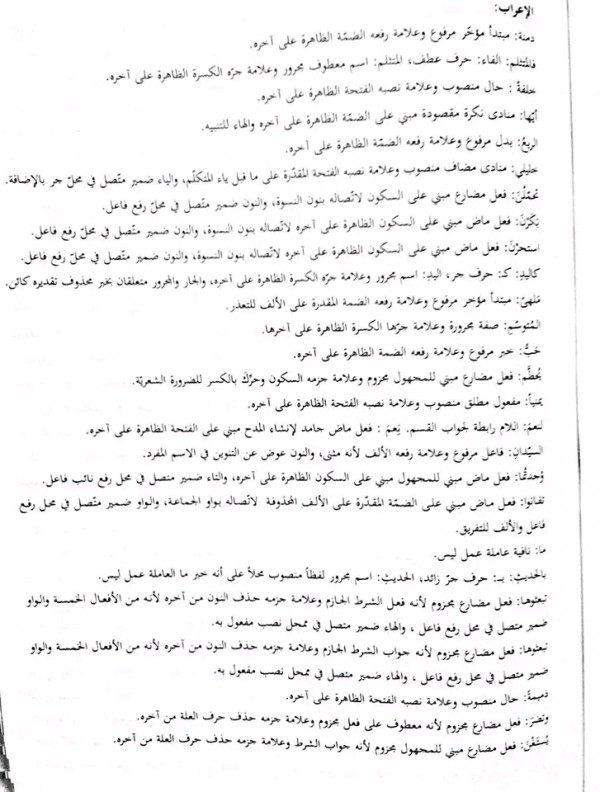 الإعراب:
دمنة: مبتدأ مؤخّر مرفوع وعلامة رفعه الضمّة الظاهرة على آخره.
فالمتثلم: الفاء: حرف عطف، المتثلم: اسم معطوف مجرور وعلامة جرّه الكسرة الظاهرة على آخره.
خلفةً: حال منصوب وعلامة نصبه الفتحة الظاهرة على آخره.
أيّها: منادى نكرة مقصودة مبني على الضمّة الظاهرة على آخره والهاء للتنبيه.
الربعُ: بدل مرفوع وعلامة رفعه الضمّة الظاهرة على آخره.
خليلي: منادى مضاف منصوب وعلامة نصبه الفتحة المقدّرة على ما قبل ياء المتكلّم، والياء ضمير متّصل في محلّ جر بالإضافة.
تحمّلْنَ: فعل مضارع مبني على السكون لاتّصاله بنون النسوة، والنون ضمير متّصل في محلّ رفع فاعل.
بَكَرْنَ: فعل ماض مبني على السكون الظاهرة على آخره لاتّصاله بنون النسوة، والنون ضمير متّصل في محلّ رفع فاعل.
استحرْنَ: فعل ماض مبني على السكون الظاهرة على آخره لاتّصاله بنون النسوة، والنون ضمير متّصل في محلّ رفع فاعل.
كاليدِ: كـ: حرف جر، اليدِ: اسم مجرور وعلامة جرّه الكسرة الظاهرة على آخره، والجار والمجرور متعلقان بخبر محذوف تقديره كائن.
مَلهىً: مبتدأ مؤخر مرفوع وعلامة رفعه الضمة المقدرة على الألف للتعذر.
المُتوسّمِ: صفة مجرورة وعلامة جرّها الكسرة الظاهرة على آخرها.
حَبُّ: خبر مرفوع وعلامة رفعه الضمة الظاهرة على آخره.
يُحطَّمِ: فعل مضارع مبني للمجهول مجزوم وعلامة جزمه السكون وحرّك بالكسر للضرورة الشعريّة.
يميناً: مفعول مطلق منصوب وعلامة نصبه الفتحة الظاهرة على آخره.
لنعمَ: اللام رابطة لجواب القسم. نِعمَ: فعل ماض جامد لإنشاء المدح مبني على الفتحة الظاهرة على آخره.
السيّدانِ: فاعل مرفوع وعلامة رفعه الألف لأنه مثنى، والنون عوض عن التنوين في الاسم المفرد.
وُجدتُما: فعل ماض مبني للمجهول مبني على السكون الظاهرة على آخره، والتاء ضمير متصل في محل رفع نائب فاعل.
تفانَوا: فعل ماض مبني على الضمّة المقدّرة على الألف المحذوفة لاتّصاله بواو الجماعة، والواو ضمير متّصل في محل رفع
فاعل والألف للتفريق.
ما: نافية عاملة عمل ليس.
بالحديثِ: بـ: حرف جرّ زائد، الحديثِ: اسم مجرور لفظاً منصوب محلاً على أنه خبر ما العاملة عمل ليس.
تبعثوها: فعل مضارع مجزوم لأنه فعل الشرط الجازم وعلامة جزمه حذف النون من آخره لأنه من الأفعال الخمسة والواو
ضمير متصل في محل رفع فاعل ، والهاء ضمير متصل في ممحل نصب مفعول به.
تبعثوها: فعل مضارع مجزوم لأنه جواب الشرط الجازم وعلامة جزمه حذف النون من آخره لأنه من الأفعال الخمسة والواو
ضمير متصل في محل رفع فاعل ، والهاء ضمير متصل في ممحل نصب مفعول به.
ذميمةً: حال منصوب وعلامة نصبه الفتحة الظاهرة على آخره.
وتضرَ: فعل مضارع مجزوم لأنه معطوف على فعل مجزوم وعلامة جزمه حذف حرف العلة من آخره.
يُستَغْنَ: فعل مضارع مبني للمجهول مجزوم لأنه جواب الشرط وعلامة جزمه حذف حرف العلة من آخره.